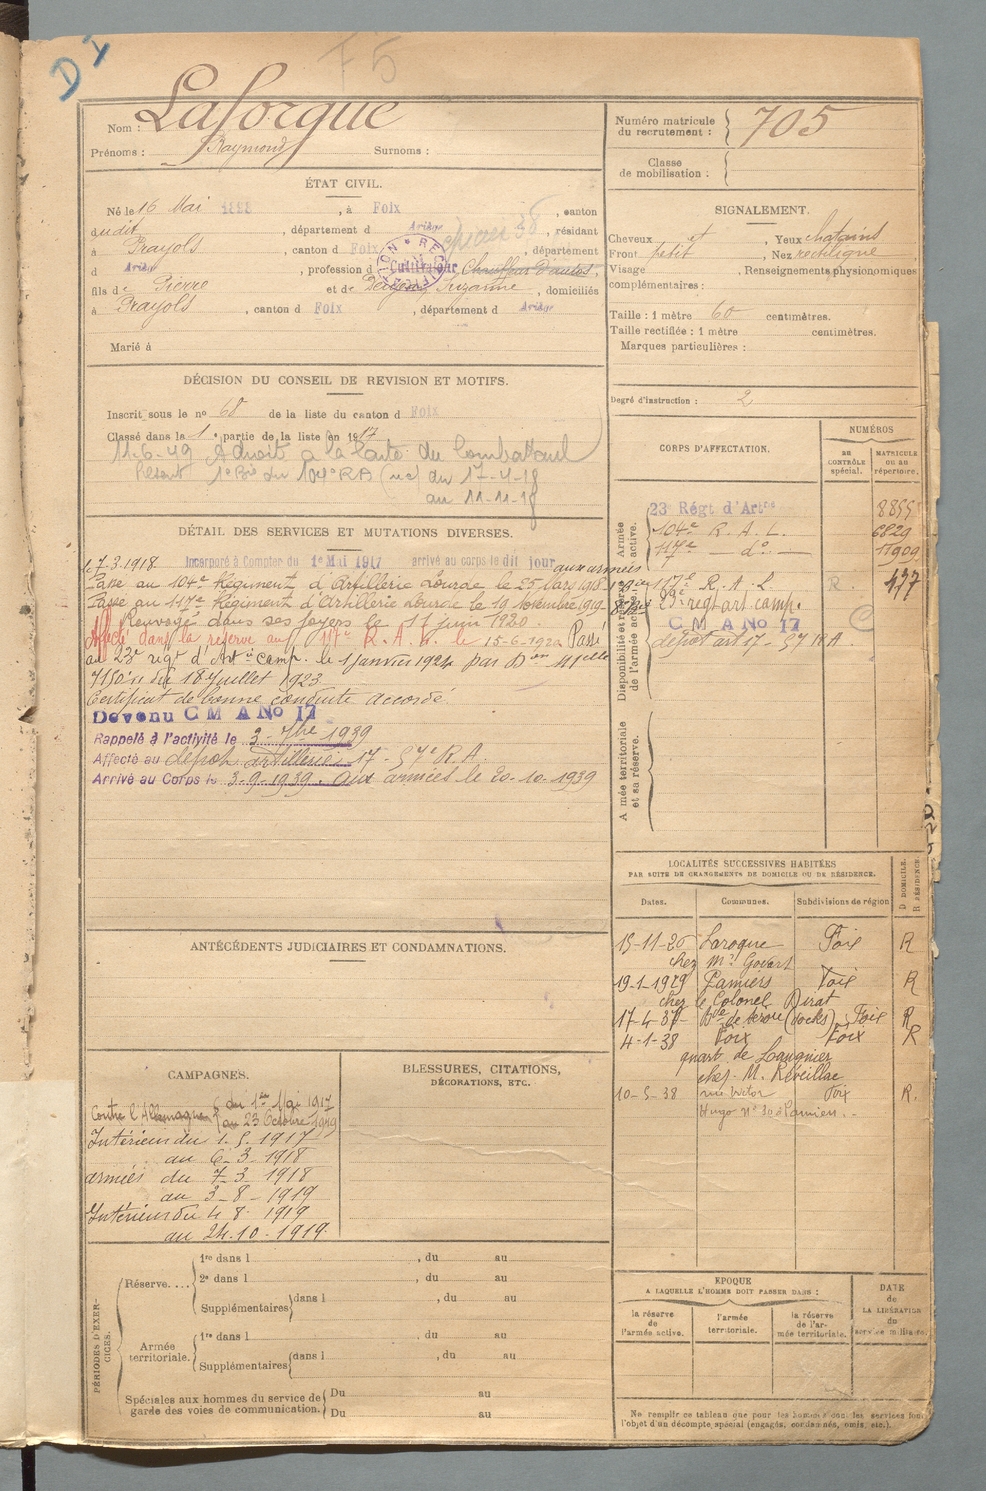 D Y
F5
Nom : Laforgue
Prénoms : Raymond Surnoms :
ÉTAT CIVIL.
Né le 16 Mai 1898, à Foix, canton
dudit, département d Ariège, résidant
à Prayols, canton d Foix, département
d Ariège, profession d Cultivateur Chauffeur d'autos,
fils de Pierre et de Suzanne, domiciliés
à Prayols, canton d Foix, département d Ariège
Marié à
DÉCISION DU CONSEIL DE REVISION ET MOTIFS.
Inscrit sous le no 68 de la liste du canton d Foix
Classé dans la 1e partie de la liste en 1917
11-6-49 a droit à la Carte du Combattant
1e Bie du 104e RA (uc) du 17-4-18
au 11-11-18
DÉTAIL DES SERVICES ET MUTATIONS DIVERSES.
Incorporé à Compter du 1e Mai 1917 arrivé au corps le dit jour aux armées
le 7.3.1918
Passé au 104e Régiment d'Artillerie Lourde le 25 Mars 1918
Passé au 117e Régiment d'Artillerie Lourde le 19 novembre 1919
Renvoyé dans ses foyers le 17 juin 1920
Affecté dans la réserve au 117e R. A. L. le 15-6-1920 Passé
au 23e régt d'Art ie camp. le 1 janvier 1924 par Don Mlle
7150 du 18 Juillet 1923
Certificat de bonne conduite accordé.
Devenu C M A No 17
Rappelé à l'activité le 3 - 7bre 1939
Affecté au dépôt artillerie 17 - 57e R.A.
Arrivé au Corps le 3-9-1939. aux armées le 20-10-1939
ANTÉCÉDENTS JUDICIAIRES ET CONDAMNATIONS.
CAMPAGNES.
Contre l'Allemagne { du 1er Mai 1917
au 23 Octobre 1919
Intérieur du 1. 5. 1917
au 6-3-1918
armées du 7-3-1918
au 3-8-1919
Intérieur du 4 8. 1919
au 24.10-1919.
BLESSURES, CITATIONS,
DÉCORATIONS, ETC.
PÉRIODES D'EXERCICES.
Réserve....
1re dans l , du au
2e dans l , du au
Supplémentaires dans l , du au
Armée
territoriale.
1re dans l , du au
Supplémentaires dans l , du au
Spéciales aux hommes du service de
garde des voies de communication.
Du au
Du au
Numéro matricule
du recrutement : 705
Classe
de mobilisation :
SIGNALEMENT.
Cheveux et, Yeux chatains
Front petit, Nez rectiligne
Visage , Renseignements physionomiques
complémentaires :
Taille : 1 mètre 60 centimètres.
Taille rectifiée : 1 mètre centimètres.
Marques particulières :
Degré d'instruction : 2
CORPS D'AFFECTATION.
NUMÉROS
au
CONTRÔLE
spécial.
MATRICULE
ou au
répertoire.
Armée
active.
23 Régt d'Artie 8855
104e R. A. L. 6829
117e — do — 11909
Disponibilité et réserve
de l'armée active.
117e R. A. L. R. 477
23e régt art. camp.
C M A No 17
dépôt art 17 - 57 RA.
Armée territoriale
et sa réserve.
LOCALITÉS SUCCESSIVES HABITÉES
PAR SUITE DE CHANGEMENTS DE DOMICILE OU DE RÉSIDENCE.
Dates. Communes. Subdivisions de région
D. DOMICILE.
R. RÉSIDENCE.
15-11-26 Laroque Foix R
chez Mr Govert
19-1-1929 Pamiers Foix R
chez le Colonel Dirat
17-4-37 (docks) Foix R
4-1-38 Foix Foix R
quart. de Langnier
chez M. Réveillac
10-5-38 rue Victor Foix R.
Hugo no 30 à Pamiers..
EPOQUE
A LAQUELLE L'HOMME DOIT PASSER DANS :
la réserve
de
l'armée active.
l'armée
territoriale.
la réserve
de l'armée territoriale.
DATE
de
LA LIBÉRATION
du
service militaire.
Ne remplir ce tableau que pour les hommes dont les services font
l'objet d'un décompte spécial (engagés, condamnés, omis, etc.).